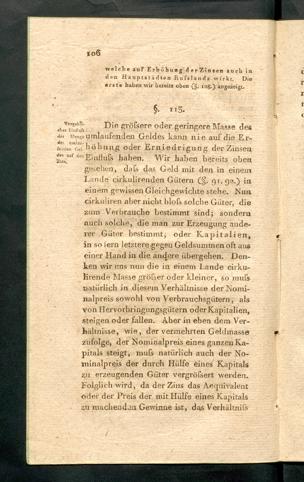 106
welche auf Erhöhung der Zinsen auch in
den Hauptstädten Russlands wirkt. Die
erste haben wir bereits oben (§. 105.) angezeigt.
§. 113.
Die größere oder geringere Masse des
umlaufenden Geldes kann nie auf die Er-
höhung oder Erniedrigung der Zinsen
Einfluß haben. Wir haben bereits oben
gesehen, daß das Geld mit den in einem
Lande cirkulirenden Gütern (§. 91. 92.) in
einem gewissen Gleichgewichte stehe. Nun
cirkuliren aber nicht bloß solche Güter, die
zum Verbrauche bestimmt sind; sondern
auch solche, die man zur Erzeugung ande-
rer Güter bestimmt, oder Kapitalien,
in so fern letztere gegen Geldsummen oft aus
einer Hand in die andere übergehen. Den-
ken wir uns nun die in einem Lande cirku-
lirende Masse größer oder kleiner, so muß
natürlich in diesem Verhältnisse der Nomi-
nalpreis sowohl von Verbrauchsgütern, als
von Hervorbringungsgütern oder Kapitalien,
steigen oder fallen. Aber in eben dem Ver-
hältnisse, wie, der vermehrten Geldmasse
zufolge, der Nominalpreis eines ganzen Ka-
pitals steigt, muß natürlich auch der No-
minalpreis der durch Hülfe eines Kapitals
zu erzeugenden Güter vergrössert werden.
Folglich wird, da der Zins das Aequivalent
oder der Preis der mit Hülfe eines Kapitals
zu machenden Gewinne ist, das Verhältniß